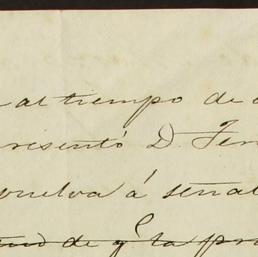 al tiempo de
resentó D. Fer
vuelva á señal
de q. la pr